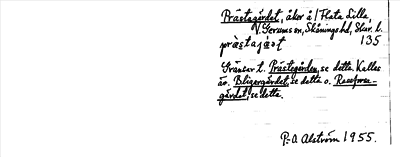 Prästagärdet, åker å/Flata Lilla,
V. Gerums sn, Skånings hd, Skar. l.
præstajæt 135
Gränsar t. Prästegården, se detta. Kallas
äv. Bligergärdet, se detta o.
gärdet, se detta.
P-a Alström 1955.